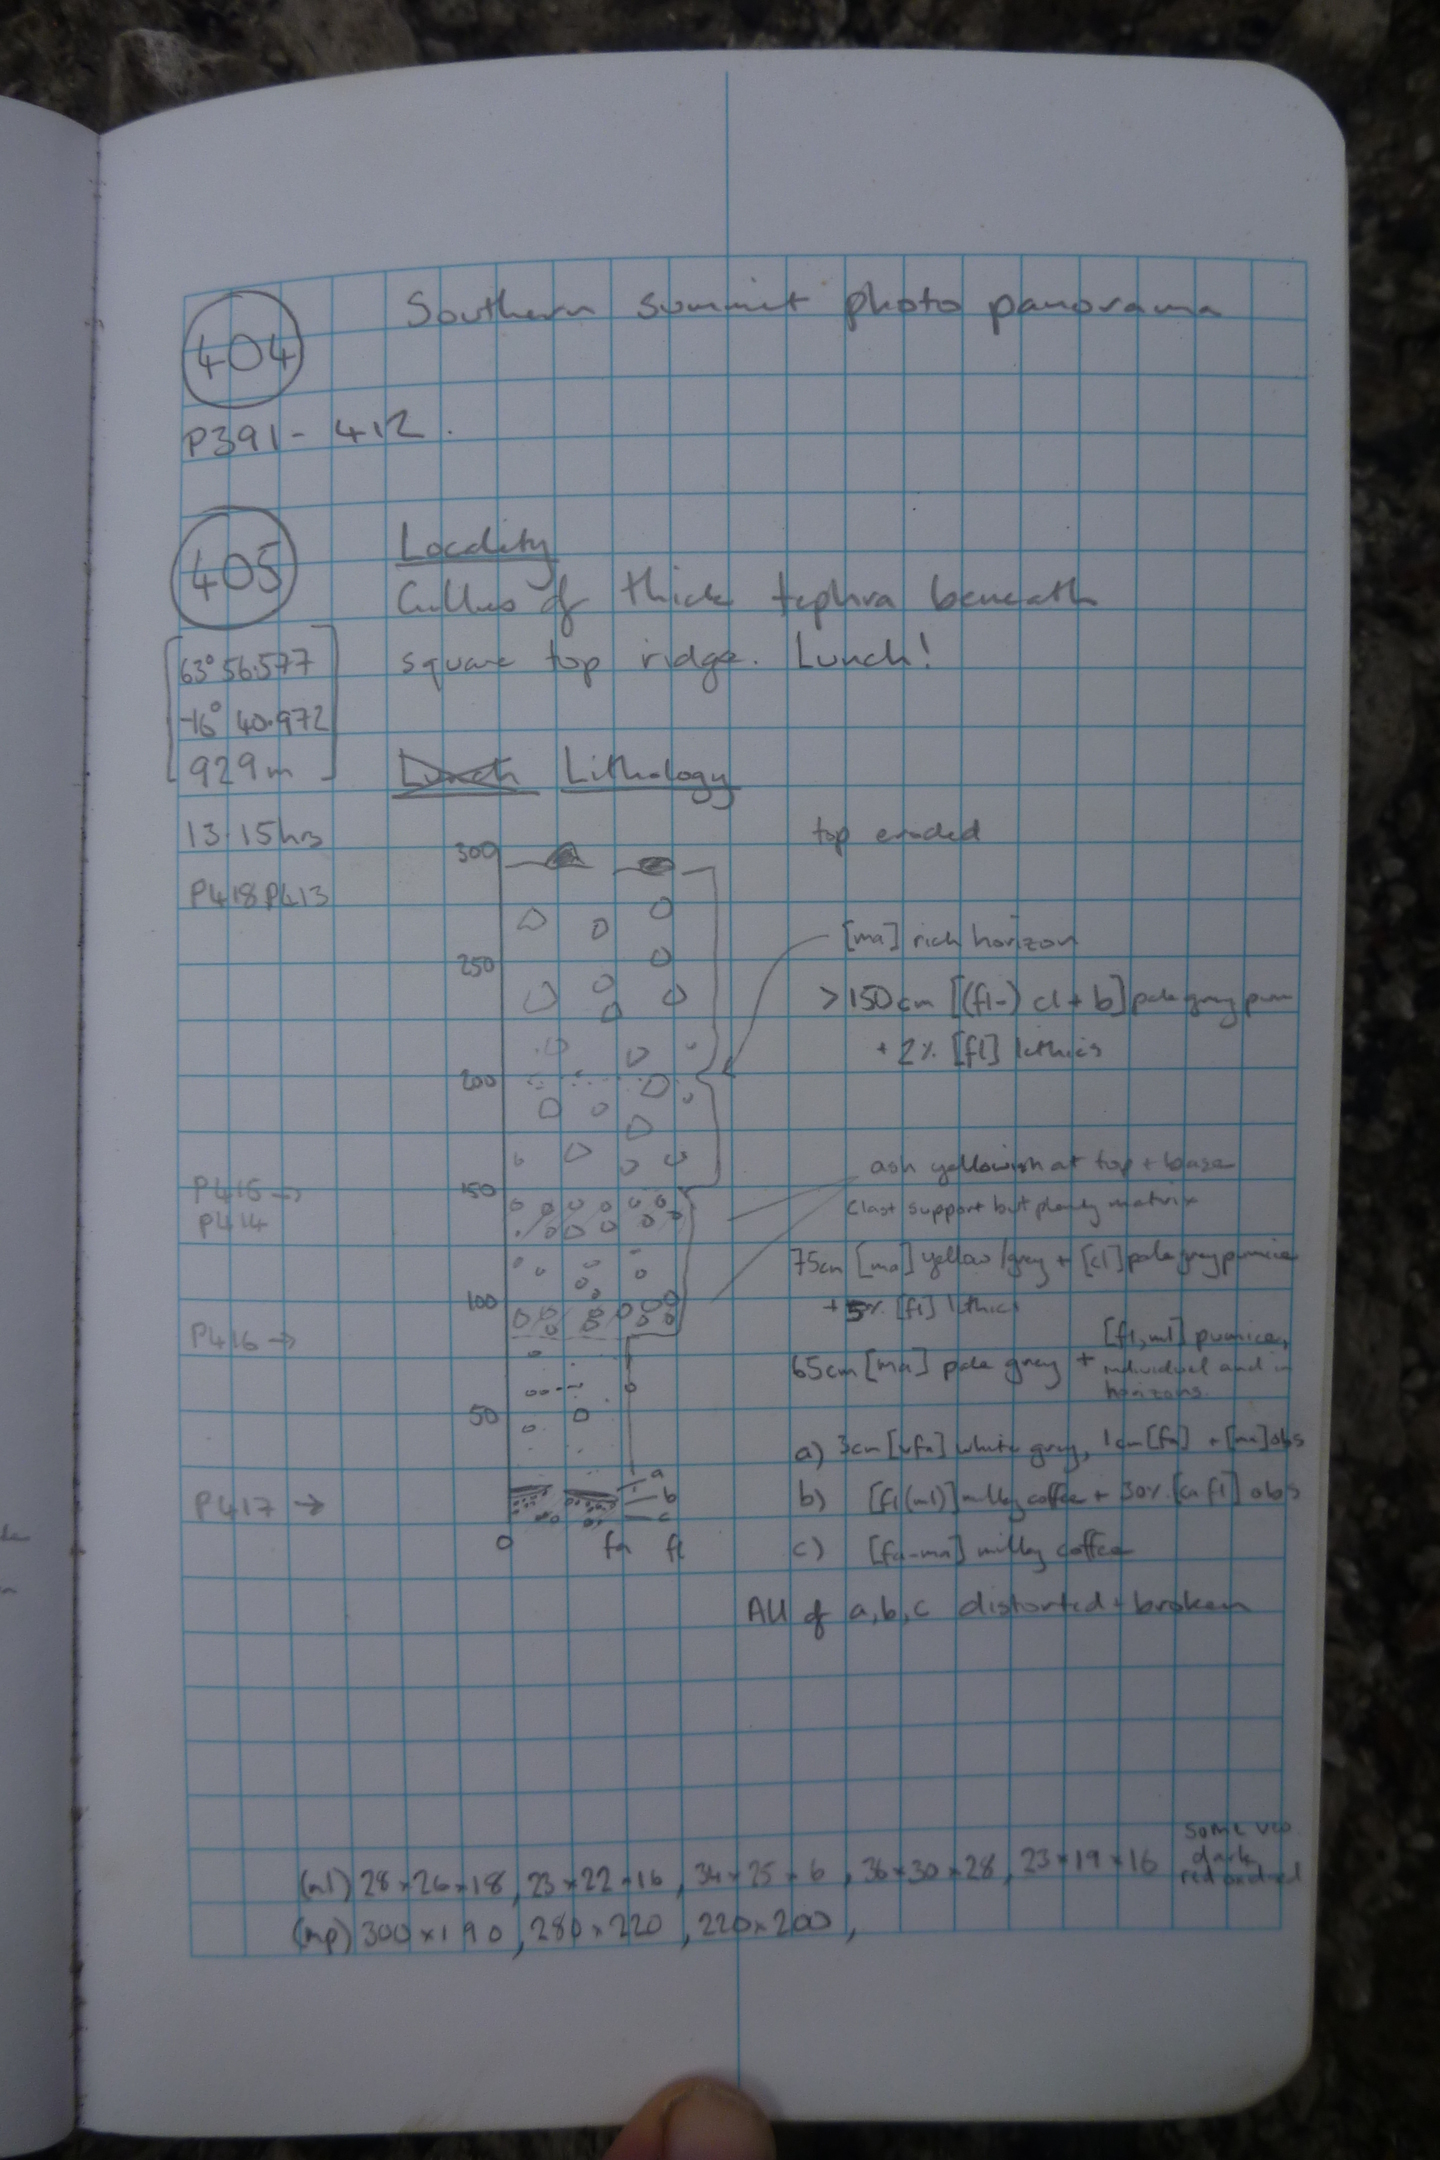 404
Southern summit photo panorama
P391 - 412.
405
Locality
Gullies of thick tephra beneath
square top ridge. Lunch!
63° 56.577
-16° 40.972
929m
Lunch Lithology
13.15hrs
top eroded
P418 P413
300
[ma] rich horizon
250
>150cm [(fl-) cl + b] pale grey pum
+ 2% [fl] lithics
200
ash yellowish at top + base
P415 →
150
P414
clast support but plenty matrix
75cm [ma] yellow/grey + [cl] pale grey pumice
100
+ 5% [fl] lithics
P416 →
65cm [ma] pale grey + [fl, ml] pumices,
individual and in
horizons.
50
a) 3cm [vfa] white grey, 1cm [fa] + [ma] obs
a
b
c
b) [fl(ml)] milky coffee + 30% [ca fl] obs
P417 →
0 fa fl
c) [fa-ma] milky coffee
All of a, b, c distorted + broken
(ml) 28×26×18, 23×22×16, 34×25×6, 36×30×28, 23×19×16
some
dark
red oxidised
(mp) 300×190, 280×220, 220×200,